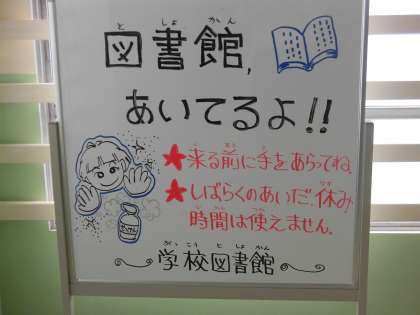 としょかん
図書館,
あいてるよ!!
★来る前に手をあらってね.
★しばらくのあいだ、休み
時間は使えません.
がっこうとしょかん
学校図書館